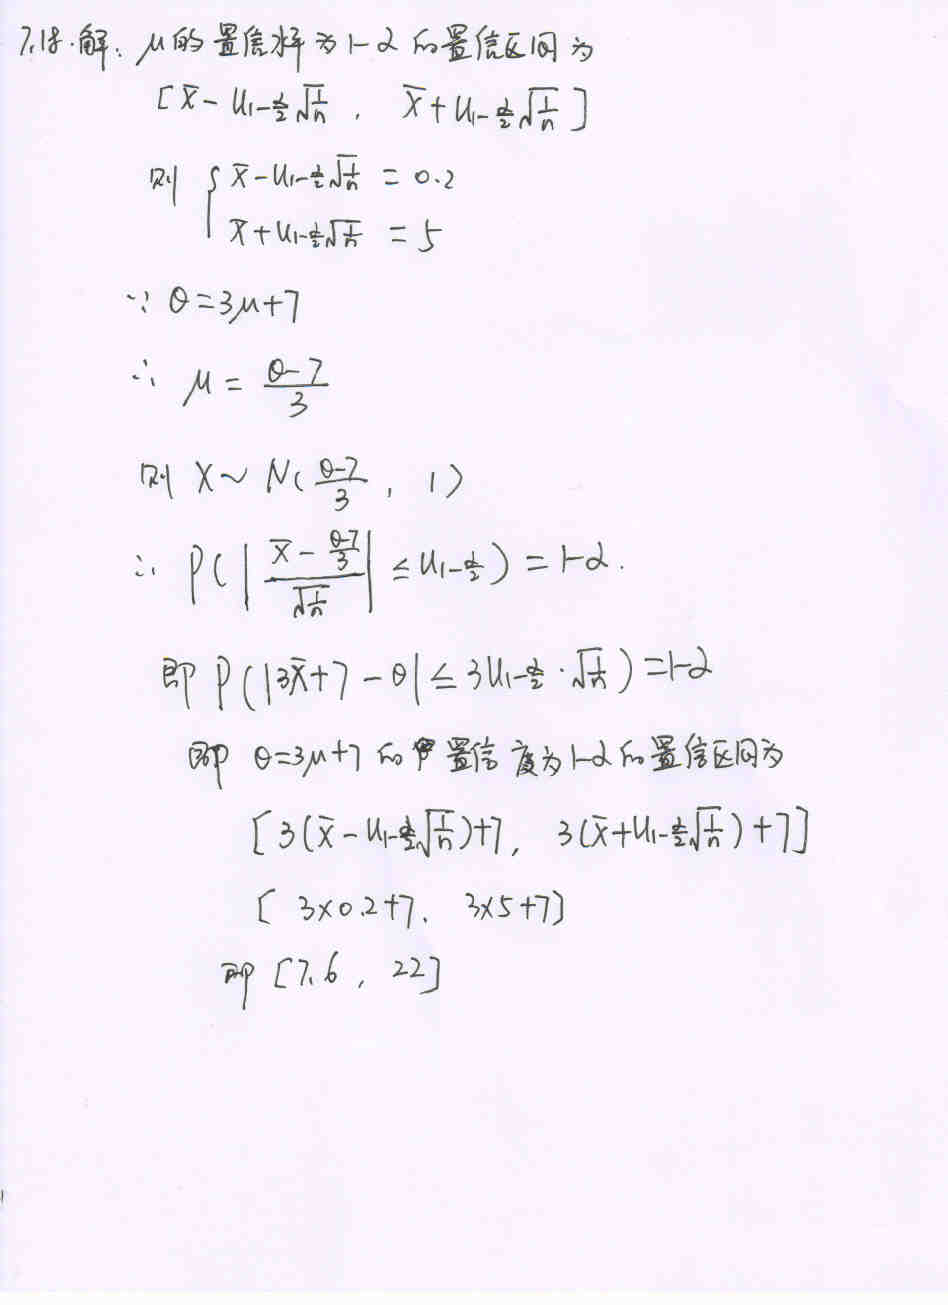 7.18.解: μ的置信水平为1-α的置信区间为
[x̄-u₁₋α/₂√(1/n), x̄+u₁₋α/₂√(1/n)]
则 { x̄-u₁₋α/₂√(1/n) = 0.2
x̄+u₁₋α/₂√(1/n) = 5
∵ θ=3μ+7
∴ μ = (θ-7)/3
则 X~N((θ-7)/3, 1)
∴ P(|(x̄-(θ-7)/3)/√(1/n)| ≤ u₁₋α/₂) = 1-α.
即 P(|3x̄+7-θ| ≤ 3u₁₋α/₂·√(1/n)) = 1-α
即 θ=3μ+7的置信度为1-α的置信区间为
[3(x̄-u₁₋α/₂√(1/n))+7, 3(x̄+u₁₋α/₂√(1/n))+7]
[3×0.2+7, 3×5+7]
即 [7.6, 22]